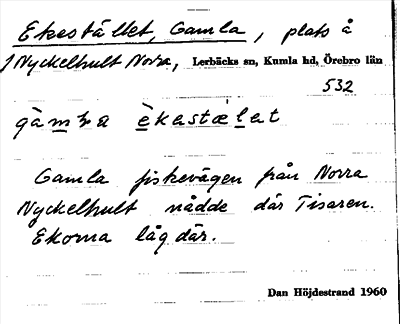 Ekestället, Gamla, plats å
1 Nyckelhult Norra, Lerbäcks sn, Kumla hd, Örebro län
532
gàmɫa èkastæ̀lat
Gamla fiskevägen från Norra
Nyckelhult nådde där Tisaren.
Ekorna låg där.
Dan Höjdestrand 1960